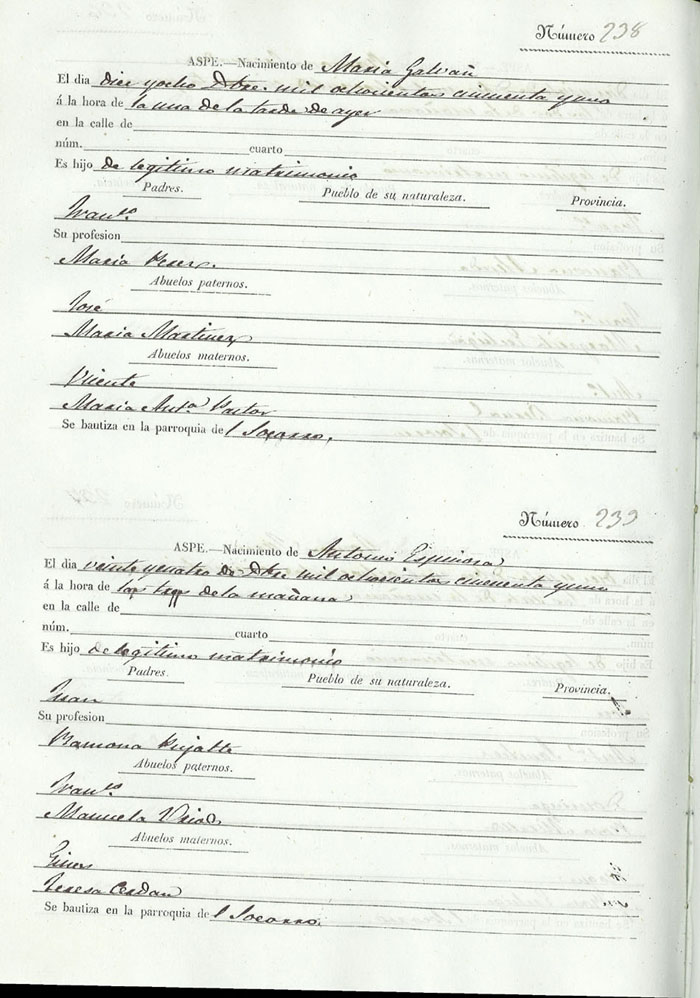 Número 238
ASPE.—Nacimiento de Maria Galvañ
El dia diez yocho Dbre. mil ochocientos cincuenta y uno
á la hora de la una de la tarde de ayer
en la calle de
núm. cuarto
Es hijo de legitimo matrimonio
Padres. Pueblo de su naturaleza. Provincia.
Franco.
Su profesion
Maria Perez.
Abuelos paternos.
José
Maria Martinez
Abuelos maternos.
Vicente
Maria Anta Pastor
Se bautiza en la parroquia de l Socorro.
Número 239
ASPE.—Nacimiento de Antonio Espinosa
El dia veinte ycuatro de Dbre mil ochocientos cincuenta yuno
á la hora de las tres de la mañana
en la calle de
núm. cuarto
Es hijo de legitimo matrimonio
Padres. Pueblo de su naturaleza. Provincia.
Juan
Su profesion
Ramona
Abuelos paternos.
Franco.
Manuela
Abuelos maternos.
Gines
Teresa Cerdan
Se bautiza en la parroquia de l Socorro.